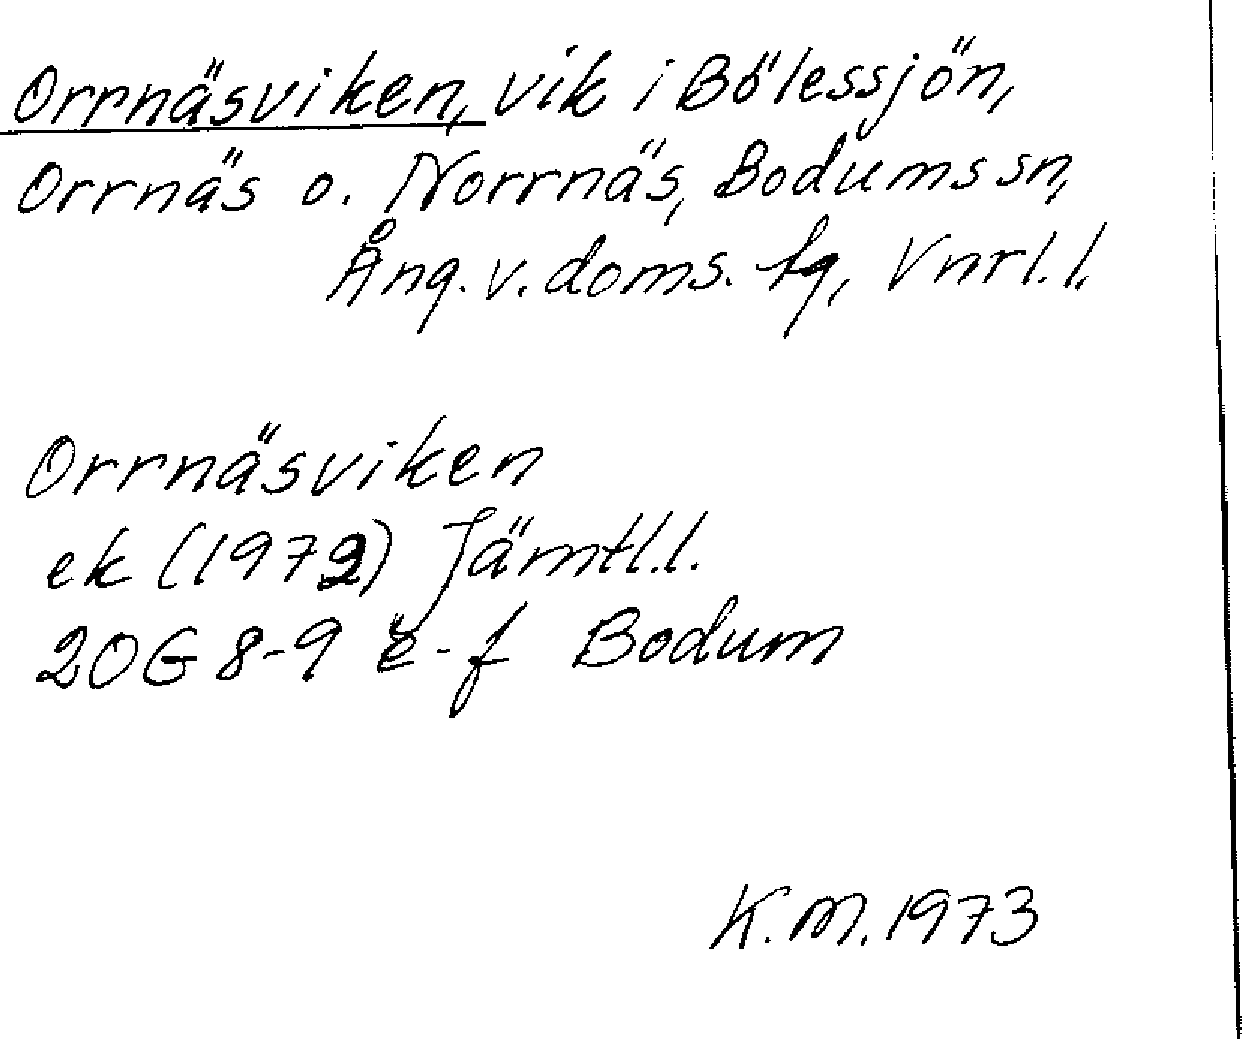 Orrnäsviken, vik i Bölessjön,
Orrnäs o. Norrnäs, Bodums sn,
Ång. v. doms. tg, Vnrl. l.
Orrnäsviken
ek (1972) Jämtl. l.
20G 8-9 e-f Bodum
K. M. 1973